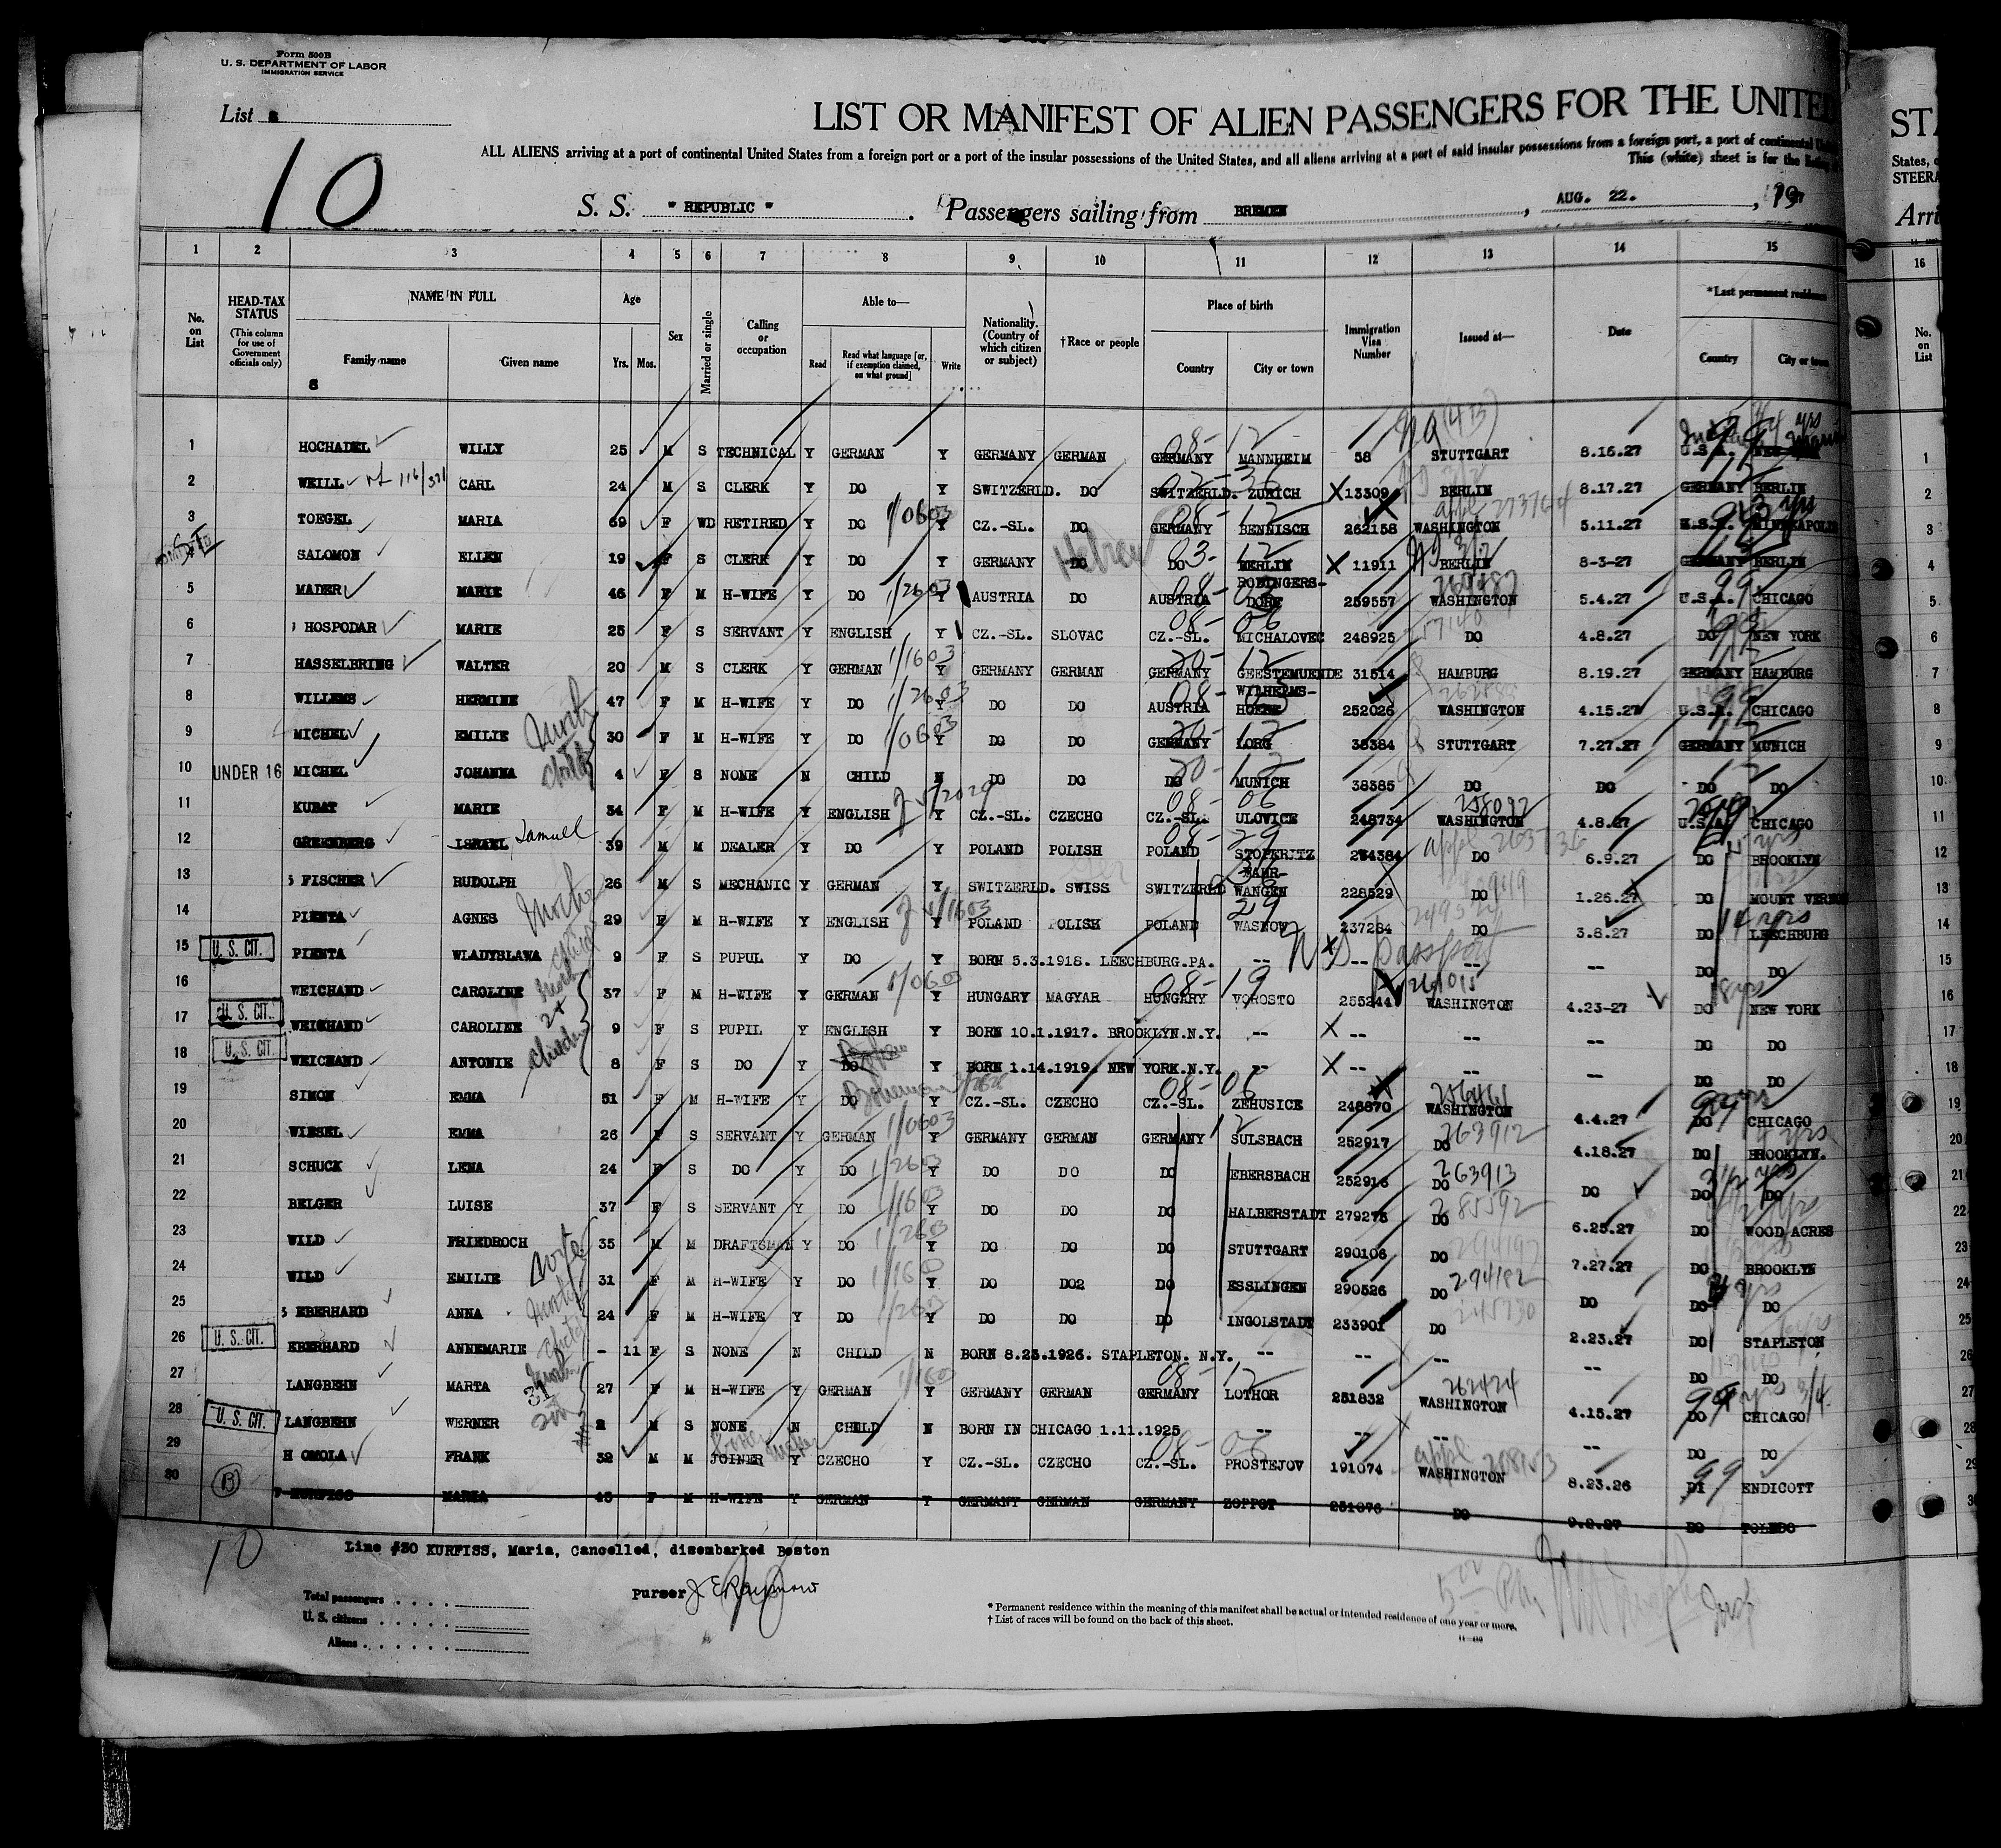 Form 500B
U. S. DEPARTMENT OF LABOR
IMMIGRATION SERVICE
List
10
LIST OR MANIFEST OF ALIEN PASSENGERS FOR THE UNITED
ALL ALIENS arriving at a port of continental United States from a foreign port or a port of the insular possessions of the United States, and all aliens arriving at a port of said insular possessions from a foreign port, a port of continental
This (white) sheet is for the
S. S. "REPUBLIC" . Passengers sailing from BREMEN , AUG. 22. , 19
1 2 3 4 5 6 7 8 9 10 11 12 13 14 15
No. on List HEAD-TAX STATUS (This column for use of Government officials only) NAME IN FULL Family name Given name Age Yrs. Mos. Sex Married or single Calling or occupation Able to— Read Read what language [or, if exemption claimed, on what ground] Write Nationality. (Country of which citizen or subject) †Race or people Place of birth Country City or town Immigration Visa Number Issued at— Date *Last permanent residence Country City or town
1 HOCHADEL WILLY 25 M S TECHNICAL Y GERMAN Y GERMANY GERMAN GERMANY MANNHEIM 58 STUTTGART 8.16.27 U.S.A.
2 WEILL CARL 24 M S CLERK Y DO Y SWITZERLD. DO SWITZERLD. ZURICH 13309 BERLIN 8.17.27 GERMANY BERLIN
3 TOEGEL MARIA 69 F WD RETIRED Y DO Y CZ.-SL. DO GERMANY BENNISCH 262158 WASHINGTON 5.11.27 U.S.A. MINNEAPOLIS
4 SALOMON ELLEN 19 F S CLERK Y DO Y GERMANY DO Hebrew DO BERLIN 11911 BERLIN 8-3-27 GERMANY BERLIN
5 MADER MARIE 46 F M H-WIFE Y DO Y AUSTRIA DO AUSTRIA DORF 259557 WASHINGTON 5.4.27 U.S.A. CHICAGO
6 HOSPODAR MARIE 25 F S SERVANT Y ENGLISH Y CZ.-SL. SLOVAC CZ.-SL. MICHALOVEC 248925 DO 4.8.27 DO NEW YORK
7 HASSELBRING WALTER 20 M S CLERK Y GERMAN Y GERMANY GERMAN GERMANY GEESTEMUENDE 31514 HAMBURG 8.19.27 GERMANY HAMBURG
8 WILLEMS HERMINE 47 F M H-WIFE Y DO Y DO DO AUSTRIA WILHELMS- 252026 WASHINGTON 4.15.27 U.S.A. CHICAGO
9 MICHEL EMILIE 30 F M H-WIFE Y DO Y DO DO GERMANY LORG 38384 STUTTGART 7.27.27 GERMANY MUNICH
10 UNDER 16 MICHEL JOHANNA 4 F S NONE N CHILD N DO DO DO MUNICH 38385 DO DO DO DO
11 KUBAT MARIE 34 F M H-WIFE Y ENGLISH Y CZ.-SL. CZECHO CZ.-SL. ULOVICE 248734 WASHINGTON 4.8.27 U.S.A. CHICAGO
12 GREENBERG ISRAEL Samuel 39 M M DEALER Y DO Y POLAND POLISH POLAND STOPERITZ 274384 DO 6.9.27 DO BROOKLYN
13 FISCHER RUDOLPH 26 M S MECHANIC Y GERMAN Y SWITZERLD. SWISS SWITZERLD WANGEN 228529 DO 1.26.27 DO MOUNT VERNON
14 PIENTA AGNES 29 F M H-WIFE Y ENGLISH Y POLAND POLISH POLAND WASNOW 237284 DO 3.8.27 DO LEECHBURG
15 U. S. CIT. PIENTA WLADYSLAWA 9 F S PUPUL Y DO Y BORN 5.3.1918. LEECHBURG.PA. -- -- -- -- DO DO
16 WEICHAND CAROLINE 37 F M H-WIFE Y GERMAN Y HUNGARY MAGYAR HUNGARY VOROSTO 255244 WASHINGTON 4.23-27 DO NEW YORK
17 U. S. CIT. WEICHAND CAROLINE 9 F S PUPIL Y ENGLISH Y BORN 10.1.1917. BROOKLYN.N.Y. -- -- -- -- DO DO
18 U. S. CIT. WEICHAND ANTONIE 8 F S DO Y DO Y BORN 1.14.1919. NEW YORK.N.Y. -- -- -- -- DO DO
19 SIMON EMMA 51 F M H-WIFE Y DO Bohemian Y CZ.-SL. CZECHO CZ.-SL. ZEHUSICE 248870 WASHINGTON 4.4.27 DO CHICAGO
20 WIESEL EMMA 26 F S SERVANT Y GERMAN Y GERMANY GERMAN GERMANY SULSBACH 252917 DO 263912 4.18.27 DO BROOKLYN.
21 SCHUCK LENA 24 F S DO Y DO Y DO DO DO EBERSBACH 252916 DO 263913 DO DO DO
22 BELGER LUISE 37 F S SERVANT Y DO Y DO DO DO HALBERSTADT 279275 DO 285592 6.25.27 DO WOOD ACRES
23 WILD FRIEDROCH 35 M M DRAFTSMAN Y DO Y DO DO DO STUTTGART 290106 DO 7.27.27 DO BROOKLYN
24 WILD EMILIE 31 F M H-WIFE Y DO Y DO DO2 DO ESSLINGEN 290526 DO 294182 DO DO DO
25 EBERHARD ANNA 24 F M H-WIFE Y DO Y DO DO DO INGOLSTADT 233901 DO 2.23.27 DO STAPLETON
26 U. S. CIT. EBERHARD ANNEMARIE - 11 F S NONE N CHILD N BORN 8.25.1926. STAPLETON. N.Y. -- -- -- -- DO DO
27 LANGBEHN MARTA 27 F M H-WIFE Y GERMAN Y GERMANY GERMAN GERMANY LOTHOR 251832 WASHINGTON 262424 4.15.27 DO CHICAGO
28 U. S. CIT. LANGBEHN WERNER 2 M S NONE N CHILD N BORN IN CHICAGO 1.11.1925 -- -- -- -- DO DO
29 H OMOLA FRANK 32 M M JOINER Y CZECHO Y CZ.-SL. CZECHO CZ.-SL. PROSTEJOV 191074 WASHINGTON 8.23.26 DI ENDICOTT
30 B KURFISS MARIA 45 F M H-WIFE Y GERMAN Y GERMANY GERMAN GERMANY ZOPPOT 251076 DO DO TOLEDO
10
Line #30 KURFISS, Maria, Cancelled, disembarked Boston
purser
Total passengers
U. S. citizens
Aliens
* Permanent residence within the meaning of this manifest shall be actual or intended residence of one year or more.
† List of races will be found on the back of this sheet.
STA
States,
STEERA
Arri
16
No. on List
1
2
3
4
5
6
7
8
9
10
11
12
13
14
15
16
17
18
19
20
21
22
23
24
25
26
27
28
29